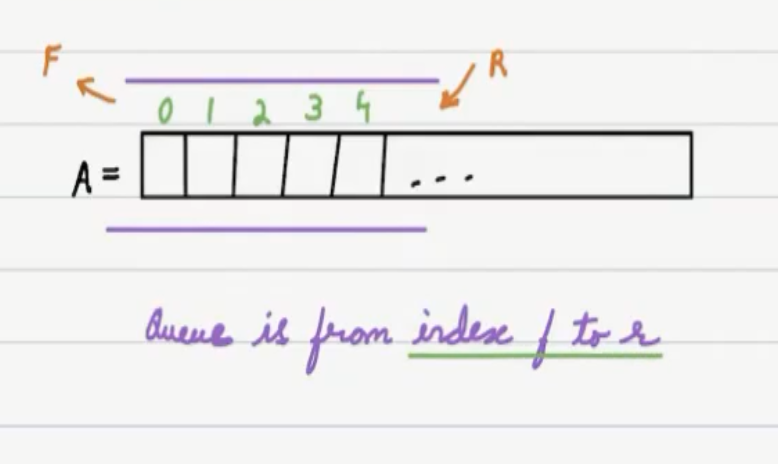 F R
0 1 2 3 4
A = ...
Queue is from index f to r